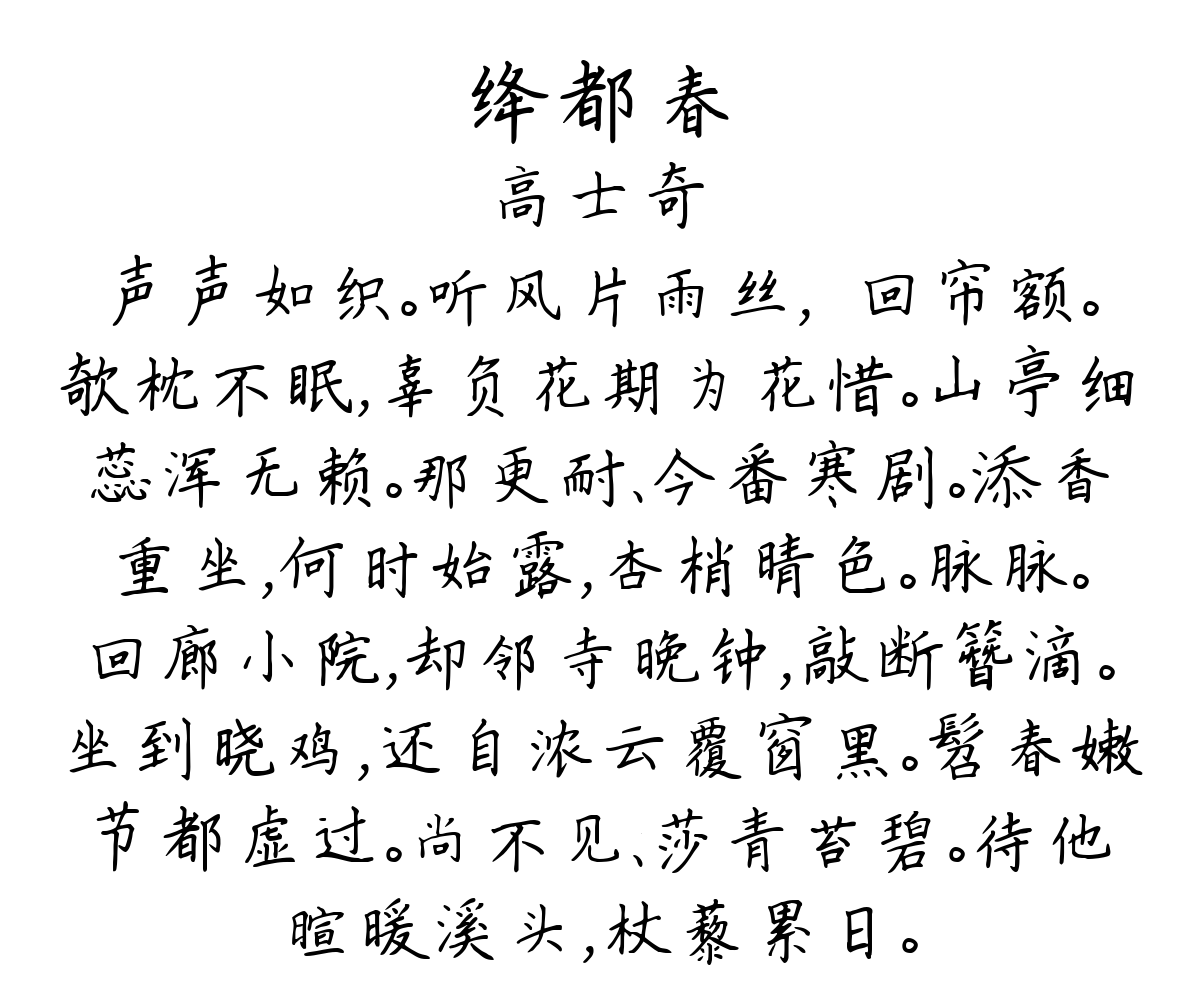 绛都春
高士奇
声声如织。听风片雨丝,回帘额。
欹枕不眠,辜负花期为花惜。山亭细
蕊浑无赖。那更耐、今番寒剧。添香
重坐,何时始露,杏梢晴色。脉脉。
回廊小院,却邻寺晚钟,敲断簪滴。
坐到晓鸡,还自浓云覆窗黑。髫春嫩
节都虚过。尚不见、莎青苔碧。待他
暄暖溪头,杖藜累日。